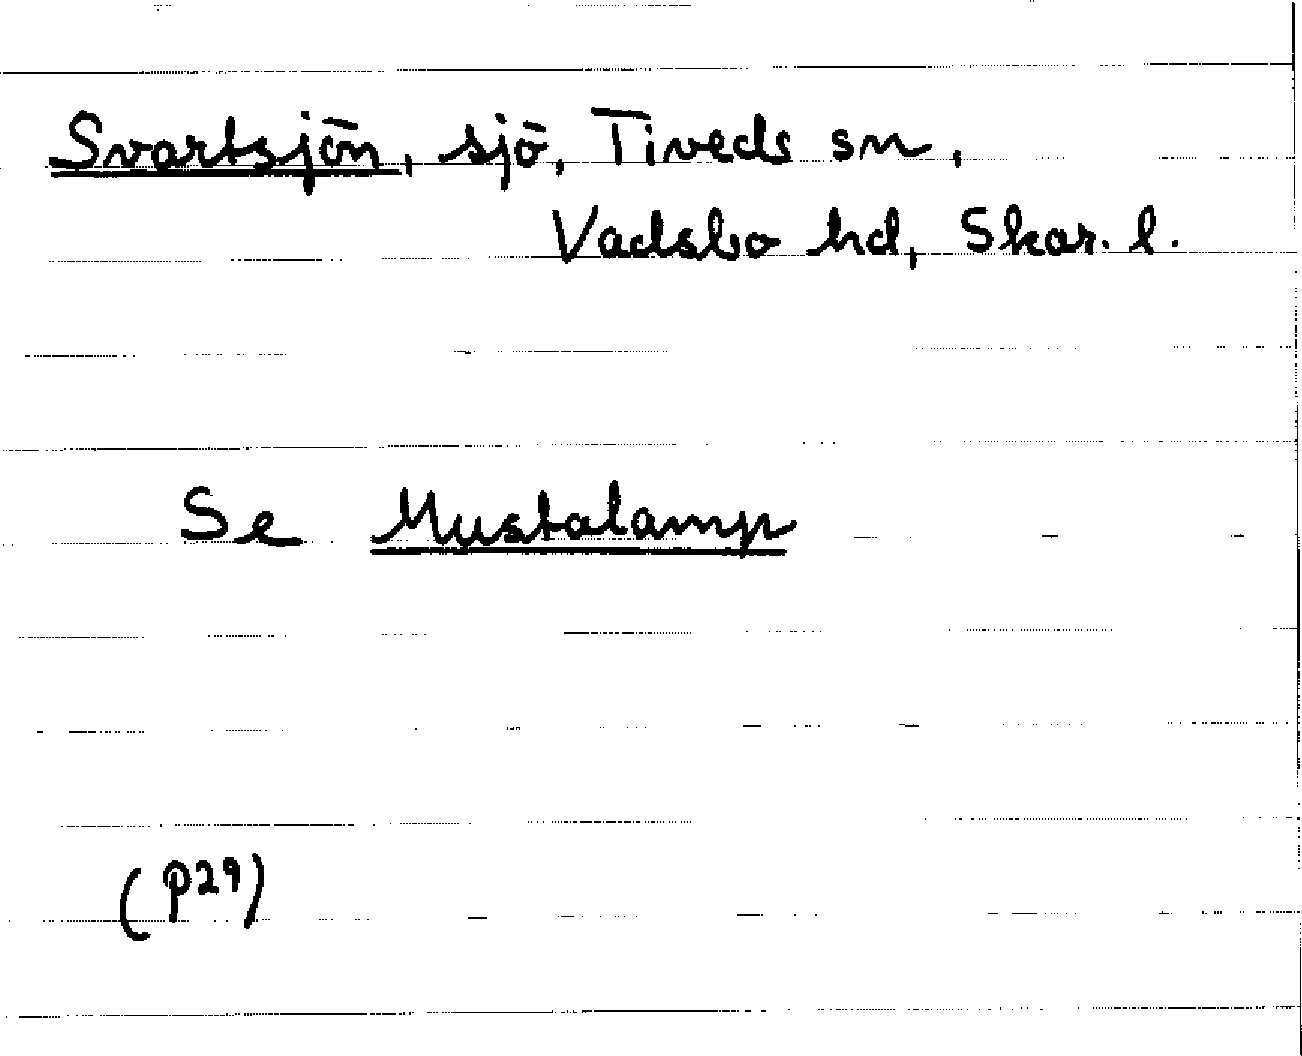 Svartsjön, sjö, Tiveds sn,
Vadsbo hd, Skar. l.
Se Mustalamp
(p29)